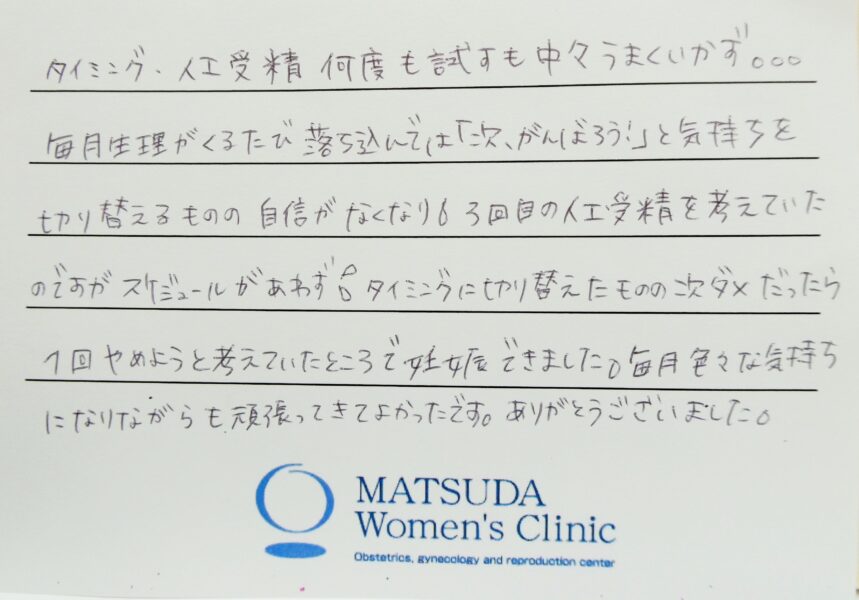 タイミング、人工受精 何度も試すも中々うまくいかず。。。
毎月生理がくるたび 落ち込んでは「次、がんばろう!」と気持ちを
切り替えるものの 自信がなくなり、3回目の人工受精を考えていた
のですが スケジュールがあわず。タイミングに切り替えたものの次ダメだったら
1回やめようと考えていたところで妊娠できました。毎月色々な気持ち
になりながらも頑張ってきてよかったです。ありがとうございました。
MATSUDA
Women's Clinic
Obstetrics, gynecology and reproduction center